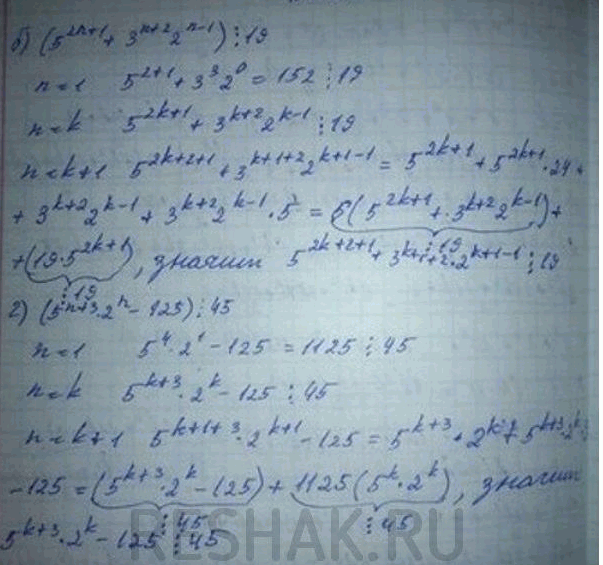 б) (5^{2n+1} + 3^{n+2} 2^{n-1}) ⋮ 19
n=1 5^{2+1} + 3^3 2^0 = 152 ⋮ 19
n=k 5^{2k+1} + 3^{k+2} 2^{k-1} ⋮ 19
n=k+1 5^{2k+2+1} + 3^{k+1+2} 2^{k+1-1} = 5^{2k+1} + 5^{2k+1} · 24 +
+ 3^{k+2} 2^{k-1} + 3^{k+2} 2^{k-1} · 5 = 6(5^{2k+1} + 3^{k+2} 2^{k-1}) +
⋮ 19
+ (19 · 5^{2k+1}), значит 5^{2k+2+1} + 3^{k+1+2} · 2^{k+1-1} ⋮ 19
⋮ 19
г) (5^{n+3} · 2^n - 125) ⋮ 45
n=1 5^4 · 2^1 - 125 = 1125 ⋮ 45
n=k 5^{k+3} · 2^k - 125 ⋮ 45
n=k+1 5^{k+1+3} · 2^{k+1} - 125 = 5^{k+3} · 2^k + 5^{k+3} · 2^k
- 125 = (5^{k+3} · 2^k - 125) + 1125 (5^k · 2^k), значит
⋮ 45 ⋮ 45
5^{k+3} · 2^k - 125 ⋮ 45
RESHAK.RU